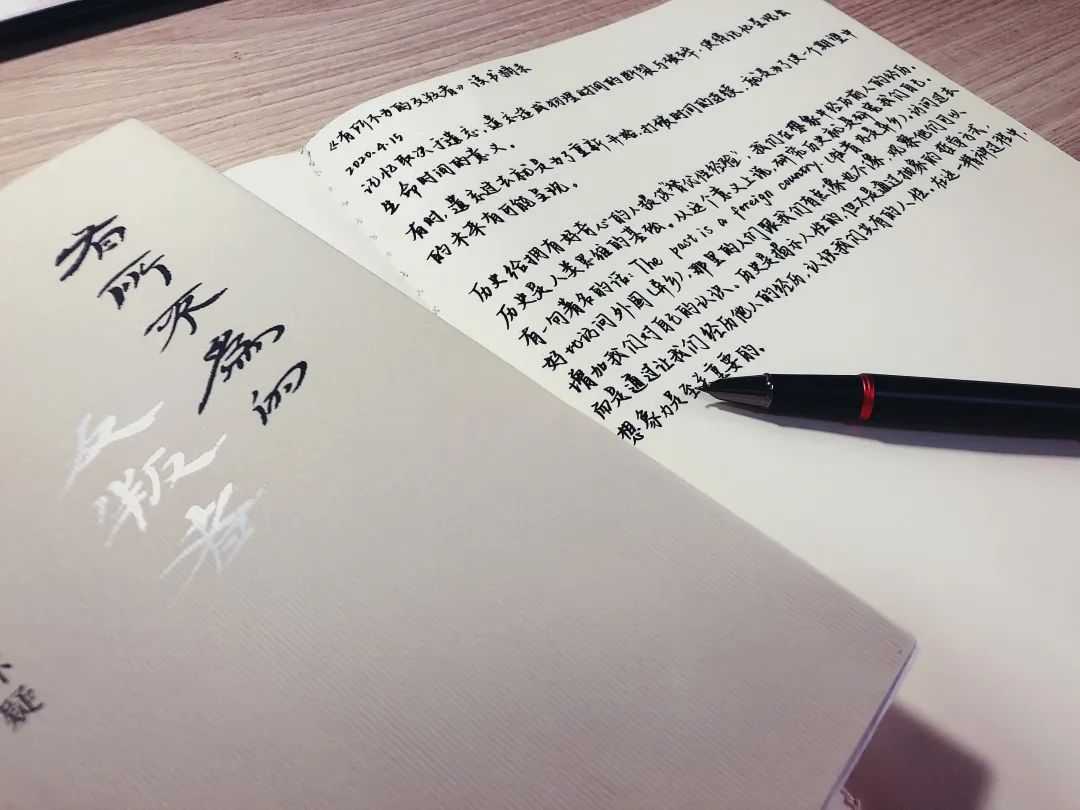 有所不為的
反叛者
疑
《有所不为的反叛者》读书摘录
2020.4.15
记忆取决于遗忘,遗忘造成物理时间的断裂与破碎,使得记忆呈现出
生命时间的意义。
有时,遗忘过去就是为了重新开始,打断时间的连续,就是为了使一个期望中
的未来有可能呈现。
历史给拥有好奇心的人提供“替代性经验”,我们在想象中经历前人的经历。
历史是人类思维的基础。从这个意义上说,研究历史就是拓宽我们自己。
有一句著名的话:The past is a foreign country(往昔就是异乡),访问过去
好比访问外国(异乡),那里的人们跟我们有些像也不像,观察他们可以
增加我们对自己的认识。历史是揭示人性的,但不是通过抽象的方式,
而是通过让我们经历他人的经历,认识我们共有的人性,在这一过程中,
想象力是至关重要的。